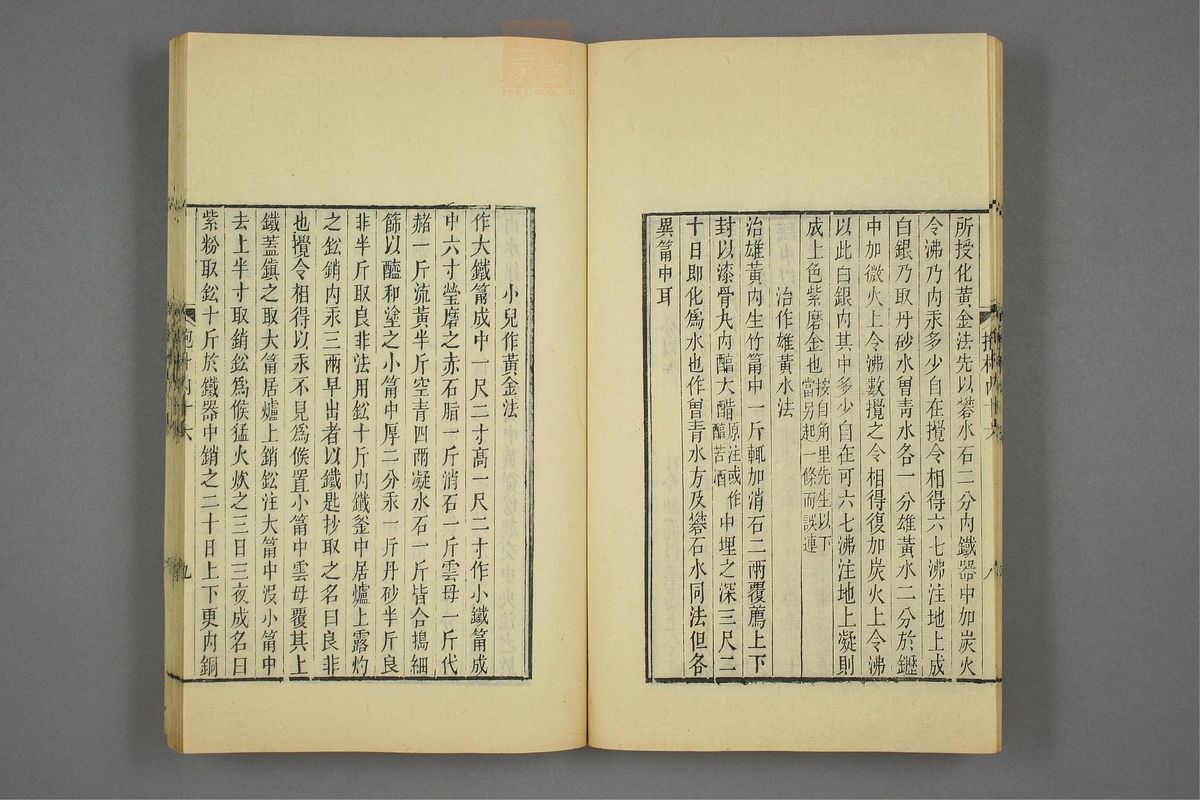 所授化黃金法先以礬水石二分內鐵器中加炭火
令沸乃內汞多少自在攪令相得六七沸注地上成
白銀乃取丹砂水曾青水各一分雄黃水二分於䥶
中加微火上令沸數攪之令相得復加炭火上令沸
以此白銀內其中多少自在可六七沸注地上凝則
成上色紫磨金也按自角里先生以下當另起一條而誤連
治作雄黃水法
治雄黃內生竹筩中一斤輒加消石二兩覆薦上下
封以漆骨丸內醕大醋原注或作醕苦酒中埋之深三尺二
十日即化為水也作曾青水方及礬石水同法但各
異筩中耳
八
小兒作黃金法
作大鐵筩成中一尺二寸高一尺二寸作小鐵筩成
中六寸瑩磨之赤石脂一斤消石一斤雲母一斤代
赭一斤流黃半斤空青四兩凝水石一斤皆合搗細
篩以醯和塗之小筩中厚二分汞一斤丹砂半斤良
非半斤取良非法用鈆十斤內鐵釜中居爐上露灼
之鈆銷內汞三兩早出者以鐵匙抄取之名曰良非
也攪令相得以汞不見為候置小筩中雲母覆其上
鐵蓋鎮之取大筩居爐上銷鈆注大筩中沒小筩中
去上半寸取銷鈆為候猛火炊之三日三夜成名曰
紫粉取鈆十斤於鐵器中銷之二十日上下更內銅
抱朴內十六
九